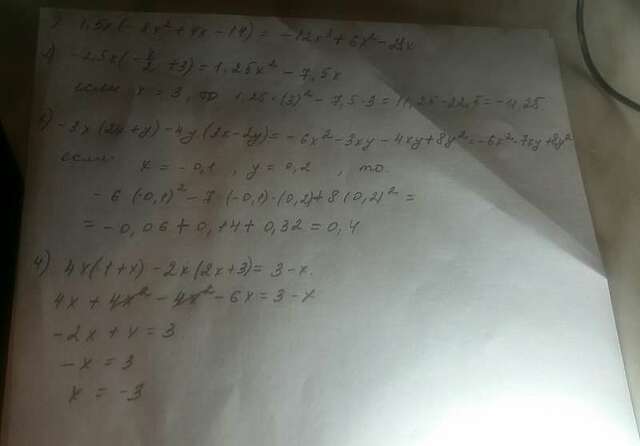 1,5x(-8x²+4x-14) = -12x³+6x²-21x
2) -2,5x(-x/2+3) = 1,25x²-7,5x
если x = 3, то 1,25·(3)²-7,5·3=11,25-22,5=-11,25
3) -3x(2x+y)-4y(x-2y)=-6x²-3xy-4xy+8y²=-6x²-7xy+8y²
если
x = -0,1, y = 0,2, то.
-6(-0,1)²-7·(-0,1)·(0,2)+8(0,2)²=
= -0,06+0,14+0,32=0,4
4) 4x(1+x)-2x(2x+3)=3-x.
4x+4x²-4x²-6x=3-x
-2x+x=3
-x=3
x = -3